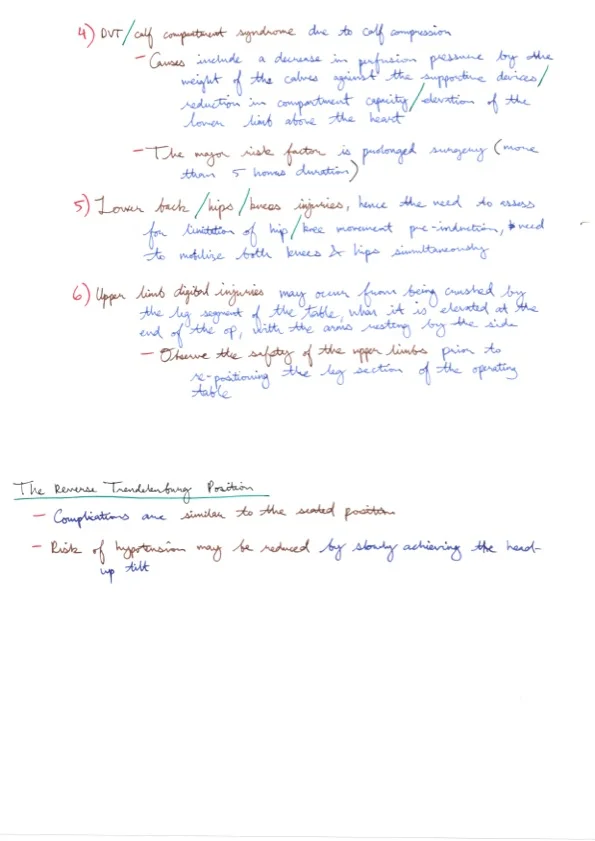 4) DVT/calf compartment syndrome due to calf compression
- Causes include a decrease in perfusion pressure by the
weight of the calves against the supportive devices/
reduction in compartment capacity/elevation of the
lower limb above the heart
- The major risk factor is prolonged surgery (more
than 5 hours duration)
5) Lower back/hips/knees injuries, hence the need to assess
for limitation of hip/knee movement pre-induction, & need
to mobilize both knees & hips simultaneously
6) Upper limb digital injuries may occur from being crushed by
the leg segment of the table, when it is elevated at the
end of the op, with the arms resting by the side
- Observe the safety of the upper limbs prior to
re-positioning the leg section of the operating
table
The Reverse Trendelenburg Position
- Complications are similar to the seated position
- Risk of hypotension may be reduced by slowly achieving the head-
up tilt